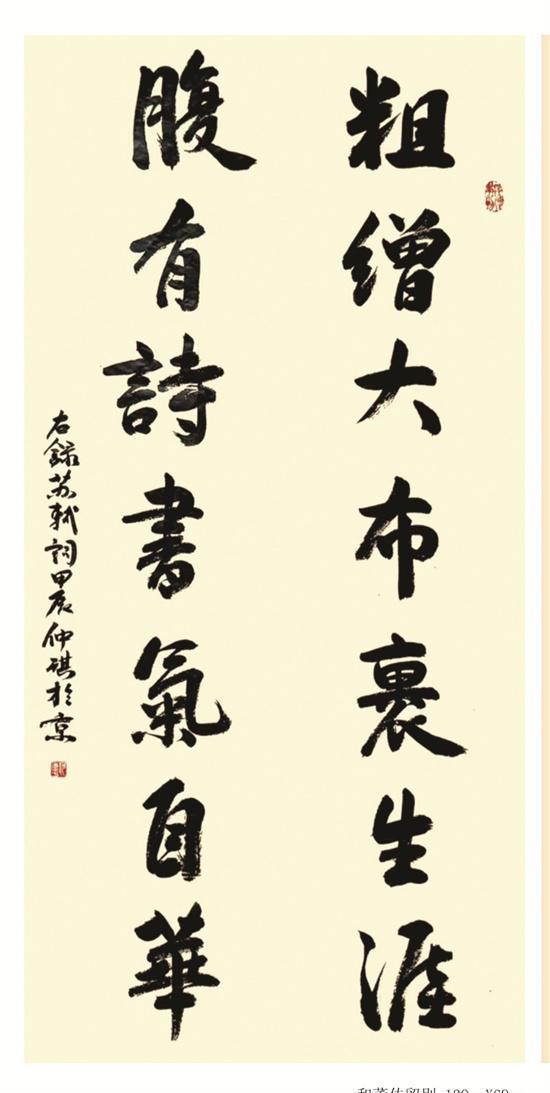 粗缯大布裹生涯
腹有詩書氣自華
右録苏轼詞甲辰仲琪於京